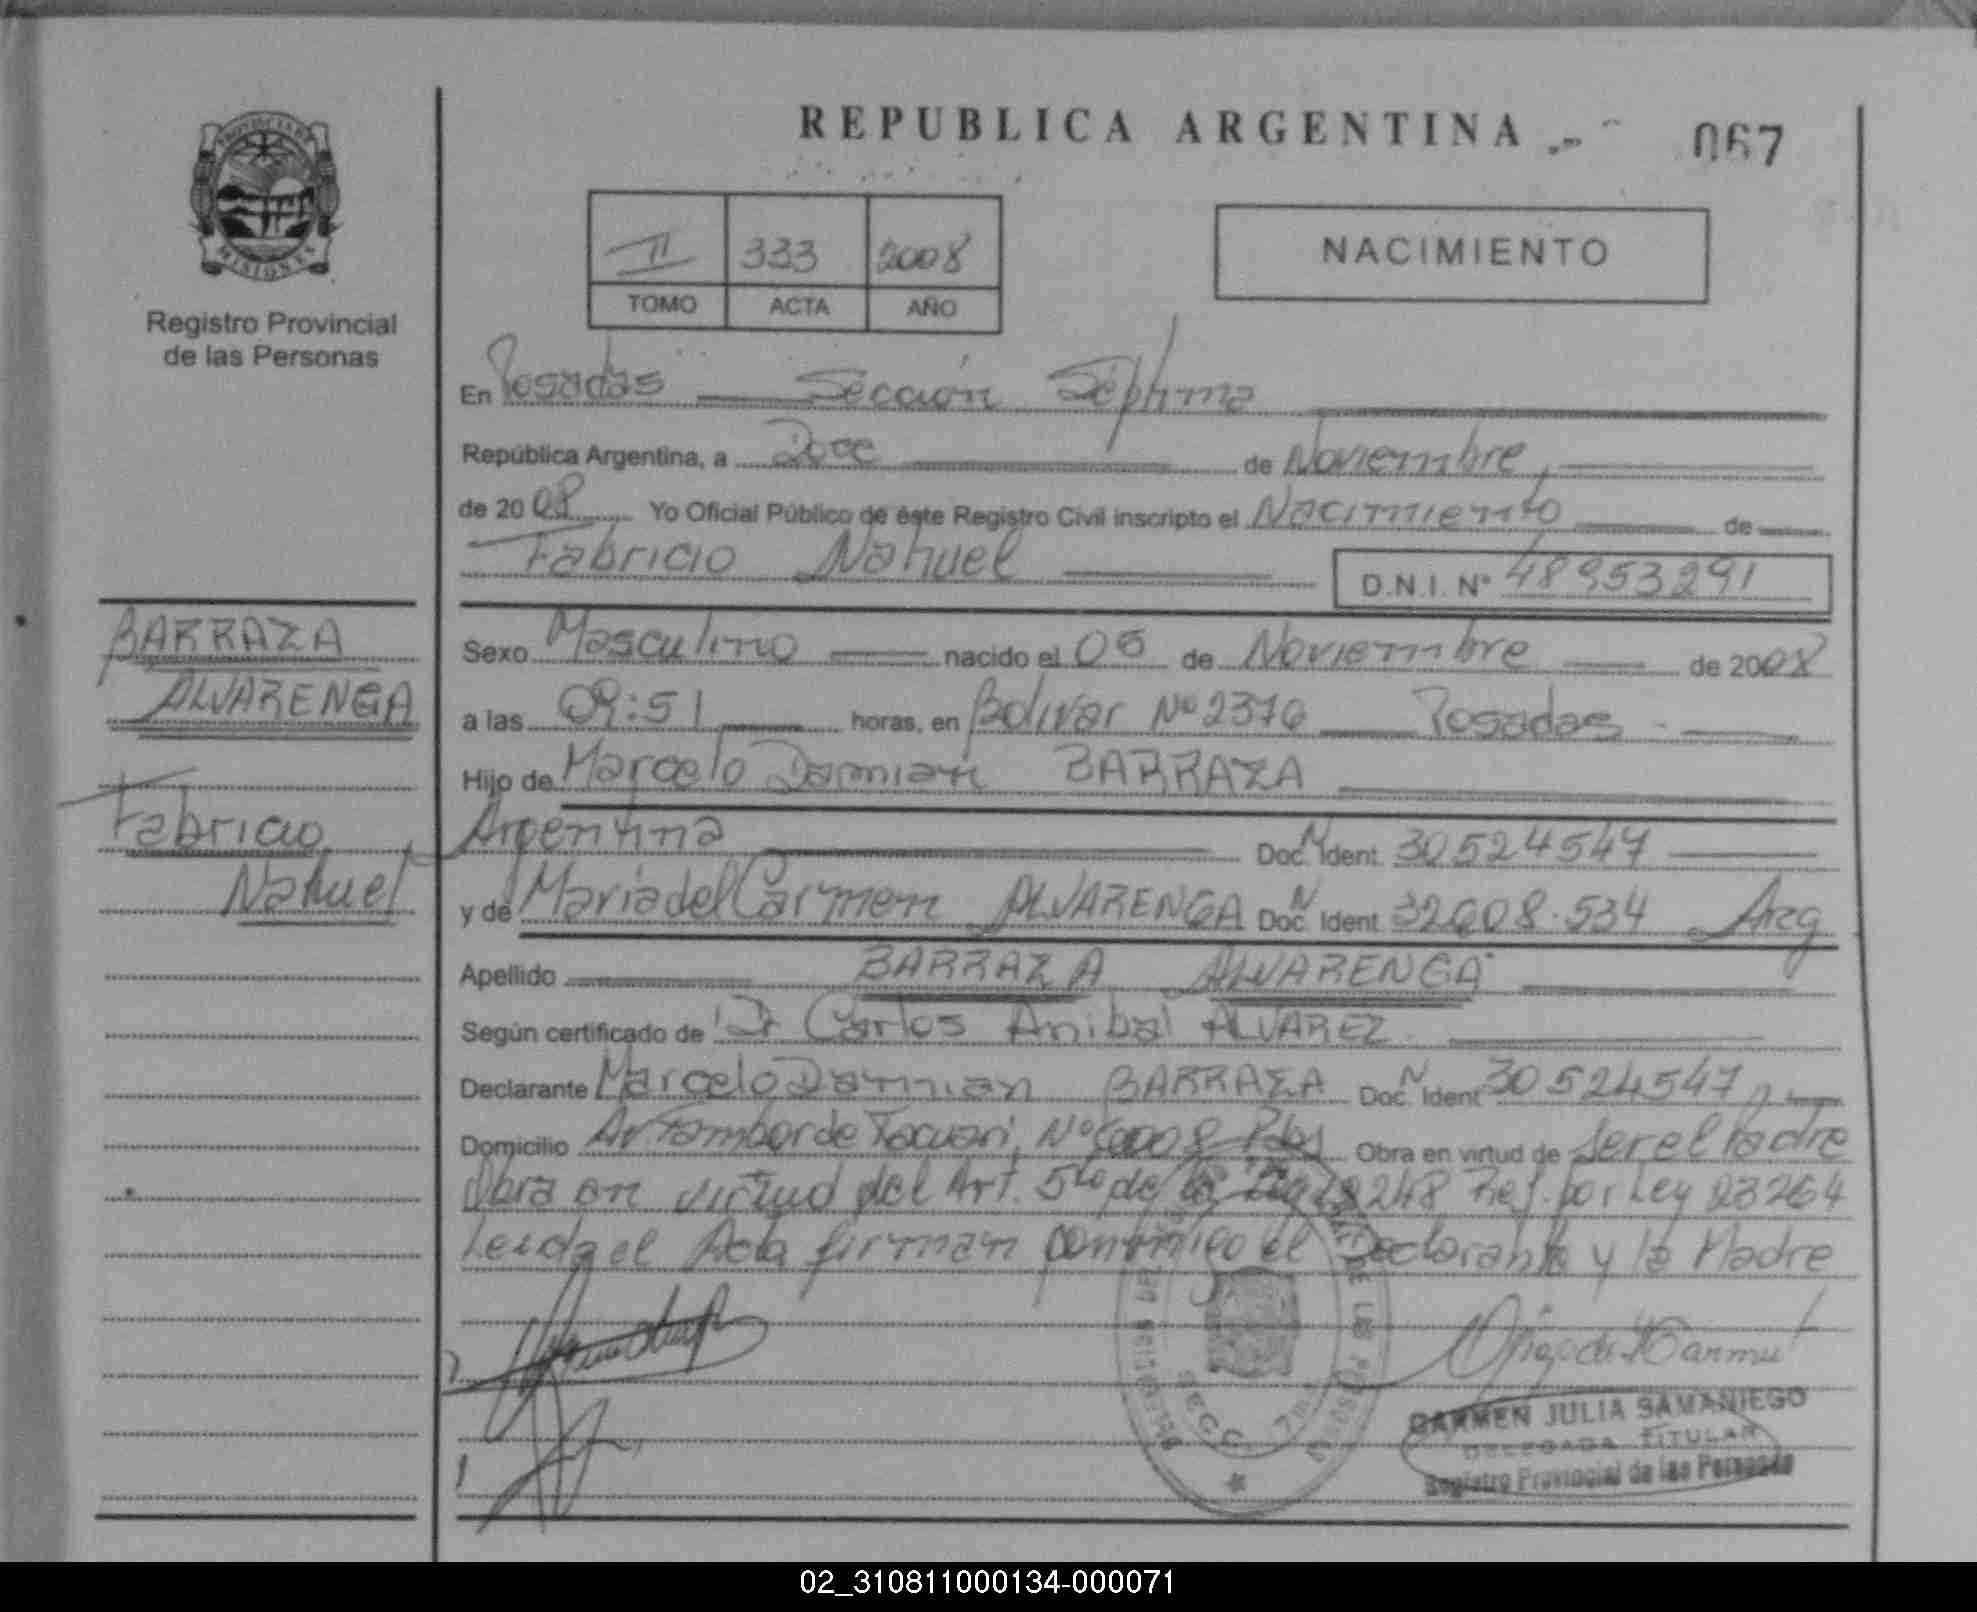 REPUBLICA ARGENTINA
067
PROVINCIA DE
MISIONES
Registro Provincial
de las Personas
II 333 2008
TOMO ACTA AÑO
NACIMIENTO
En Posadas Sección Séptima
República Argentina, a Doce de Noviembre,
de 2008 Yo Oficial Público de éste Registro Civil inscripto el Nacimiento de
Fabricio Nahuel D.N.I. Nº 48953291
BARRAZA
ALVARENGA
Fabricio
Nahuel
Sexo Masculino nacido el 06 de Noviembre de 2008
a las 09:51 horas, en Bolivar Nº 2376 Posadas
Hijo de Marcelo Damian BARRAZA
Argentina Doc. N Ident. 30524547
y de Maria del Carmen ALVARENGA Doc. N Ident. 32608.534 Arg
Apellido BARRAZA ALVARENGA
Según certificado de Dr Carlos Anibal ALVAREZ
Declarante Marcelo Damian BARRAZA Doc. N Ident 30524547
Domicilio Av. Tambor de Tacuari, Nº Pdas Obra en virtud de ser el Padre
Obra en virtud del Art. 5to de la Ley 18248 Ref. por Ley 23264
Leida el Acta firman conmigo el Declarante y la Madre
SECC. 7ma
CARMEN JULIA SAMANIEGO
DELEGADA TITULAR
Registro Provincial de las Personas
02_310811000134-000071